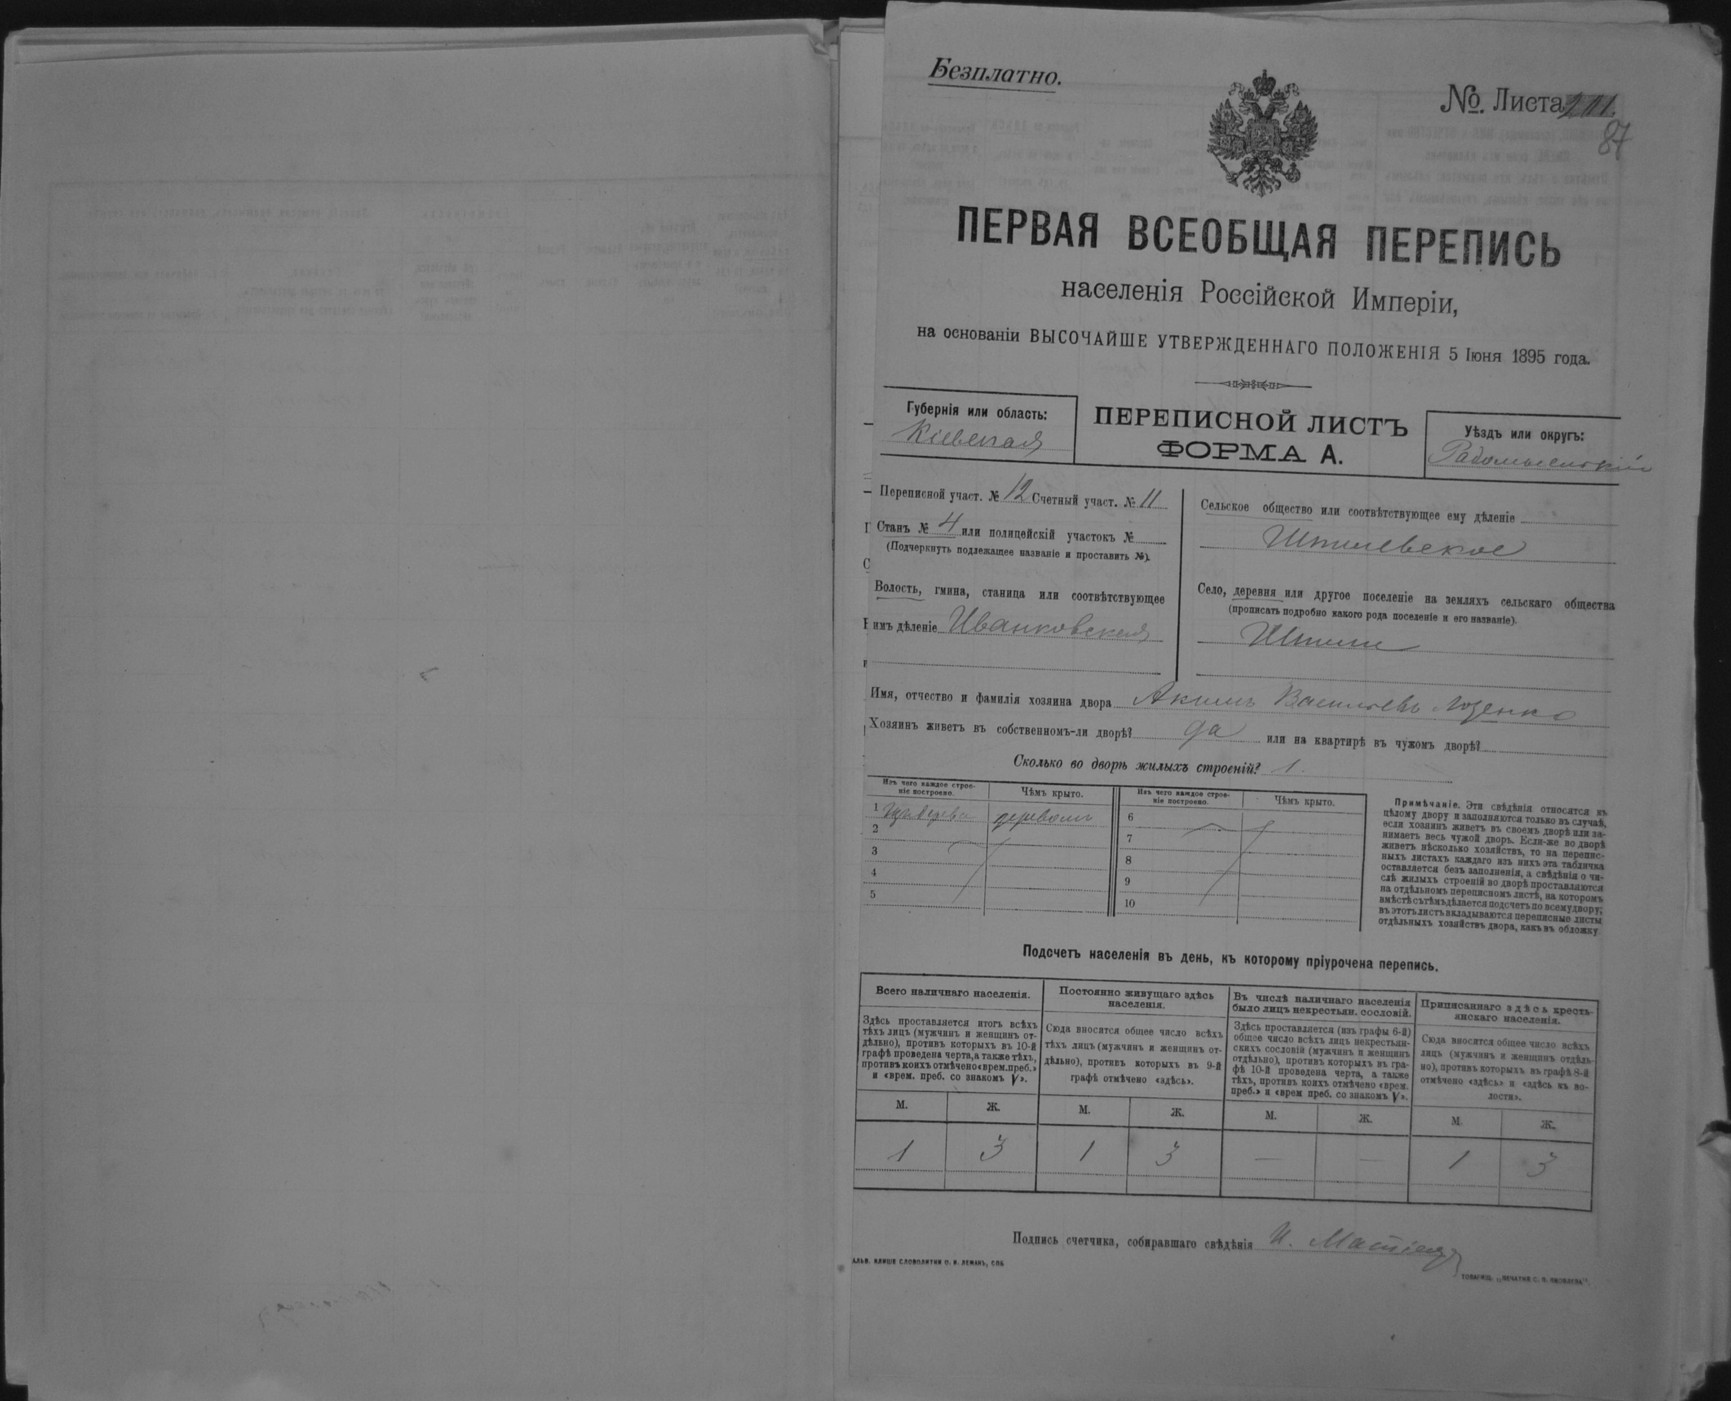 Безплатно.
№. Листа
87
ПЕРВАЯ ВСЕОБЩАЯ ПЕРЕПИСЬ
населенія Россійской Имперіи,
на основаніи ВЫСОЧАЙШЕ УТВЕРЖДЕННАГО ПОЛОЖЕНІЯ 5 Іюня 1895 года.
Губернія или область:
Кіевская
ПЕРЕПИСНОЙ ЛИСТЪ
ФОРМА А.
Уѣздъ или округъ:
Радомысльскій
Переписной участ. № 12 Счетный участ. № 11
Станъ № 4 или полицейскій участокъ №
(Подчеркнуть подлежащее названіе и проставить №).
Волость, гмина, станица или соотвѣтствующее
имъ дѣленіе Иванковская
Сельское общество или соотвѣтствующее ему дѣленіе
Шпилевское
Село, деревня или другое поселеніе на земляхъ сельскаго общества
(прописать подробно какого рода поселеніе и его названіе).
Шпили
Имя, отчество и фамилія хозяина двора Акимъ Васильевъ Юзенко
Хозяинъ живетъ въ собственномъ-ли дворѣ? да или на квартирѣ въ чужомъ дворѣ?
Сколько во дворѣ жилыхъ строеній? 1.
Изъ чего каждое строе-
ніе построено.
Чѣмъ крыто.
Изъ чего каждое строе-
ніе построено.
Чѣмъ крыто.
1 Изъ дерева деревомъ
2
3
4
5
6
7
8
9
10
Примѣчаніе. Эти свѣдѣнія относятся къ
цѣлому двору и заполняются только въ случаѣ,
если хозяинъ живетъ въ своемъ дворѣ или за-
нимаетъ весь чужой дворъ. Если-же во дворѣ
живетъ нѣсколько хозяйствъ, то на перепис-
ныхъ листахъ каждаго изъ нихъ эта табличка
оставляется безъ заполненія, а свѣдѣнія о чи-
слѣ жилыхъ строеній во дворѣ проставляются
на отдѣльномъ переписномъ листѣ, на которомъ
вмѣстѣ съ тѣмъ дѣлается подсчетъ по всему двору;
въ этотъ листъ вкладываются переписные листы
отдѣльныхъ хозяйствъ двора, какъ въ обложку
Подсчетъ населенія въ день, къ которому пріурочена перепись.
Всего наличнаго населенія.
Здѣсь проставляется итогъ всѣхъ
тѣхъ лицъ (мужчинъ и женщинъ от-
дѣльно), противъ которыхъ въ 10-й
графѣ проведена черта, а также тѣхъ,
противъ коихъ отмѣчено «врем. преб.»
и «врем. преб. со знакомъ V».
Постоянно живущаго здѣсь
населенія.
Сюда вносится общее число всѣхъ
тѣхъ лицъ (мужчинъ и женщинъ от-
дѣльно), противъ которыхъ въ 9-й
графѣ отмѣчено «здѣсь».
Въ числѣ наличнаго населенія
было лицъ некрестьян. сословій.
Здѣсь проставляется (изъ графы 6-й)
общее число всѣхъ лицъ некрестьян-
скихъ сословій (мужчинъ и женщинъ
отдѣльно), противъ которыхъ въ гра-
фѣ 10-й проведена черта, а также
тѣхъ, противъ коихъ отмѣчено «врем.
преб.» и «врем преб. со знакомъ V».
Приписаннаго здѣсь кресть-
янскаго населенія.
Сюда вносится общее число всѣхъ
лицъ (мужчинъ и женщинъ отдѣль-
но), противъ которыхъ въ графѣ 8-й
отмѣчено «здѣсь» и «здѣсь въ во-
лости».
М. Ж. М. Ж. М. Ж. М. Ж.
1 3 1 3 — — 1 3
Подпись счетчика, собиравшаго свѣдѣнія